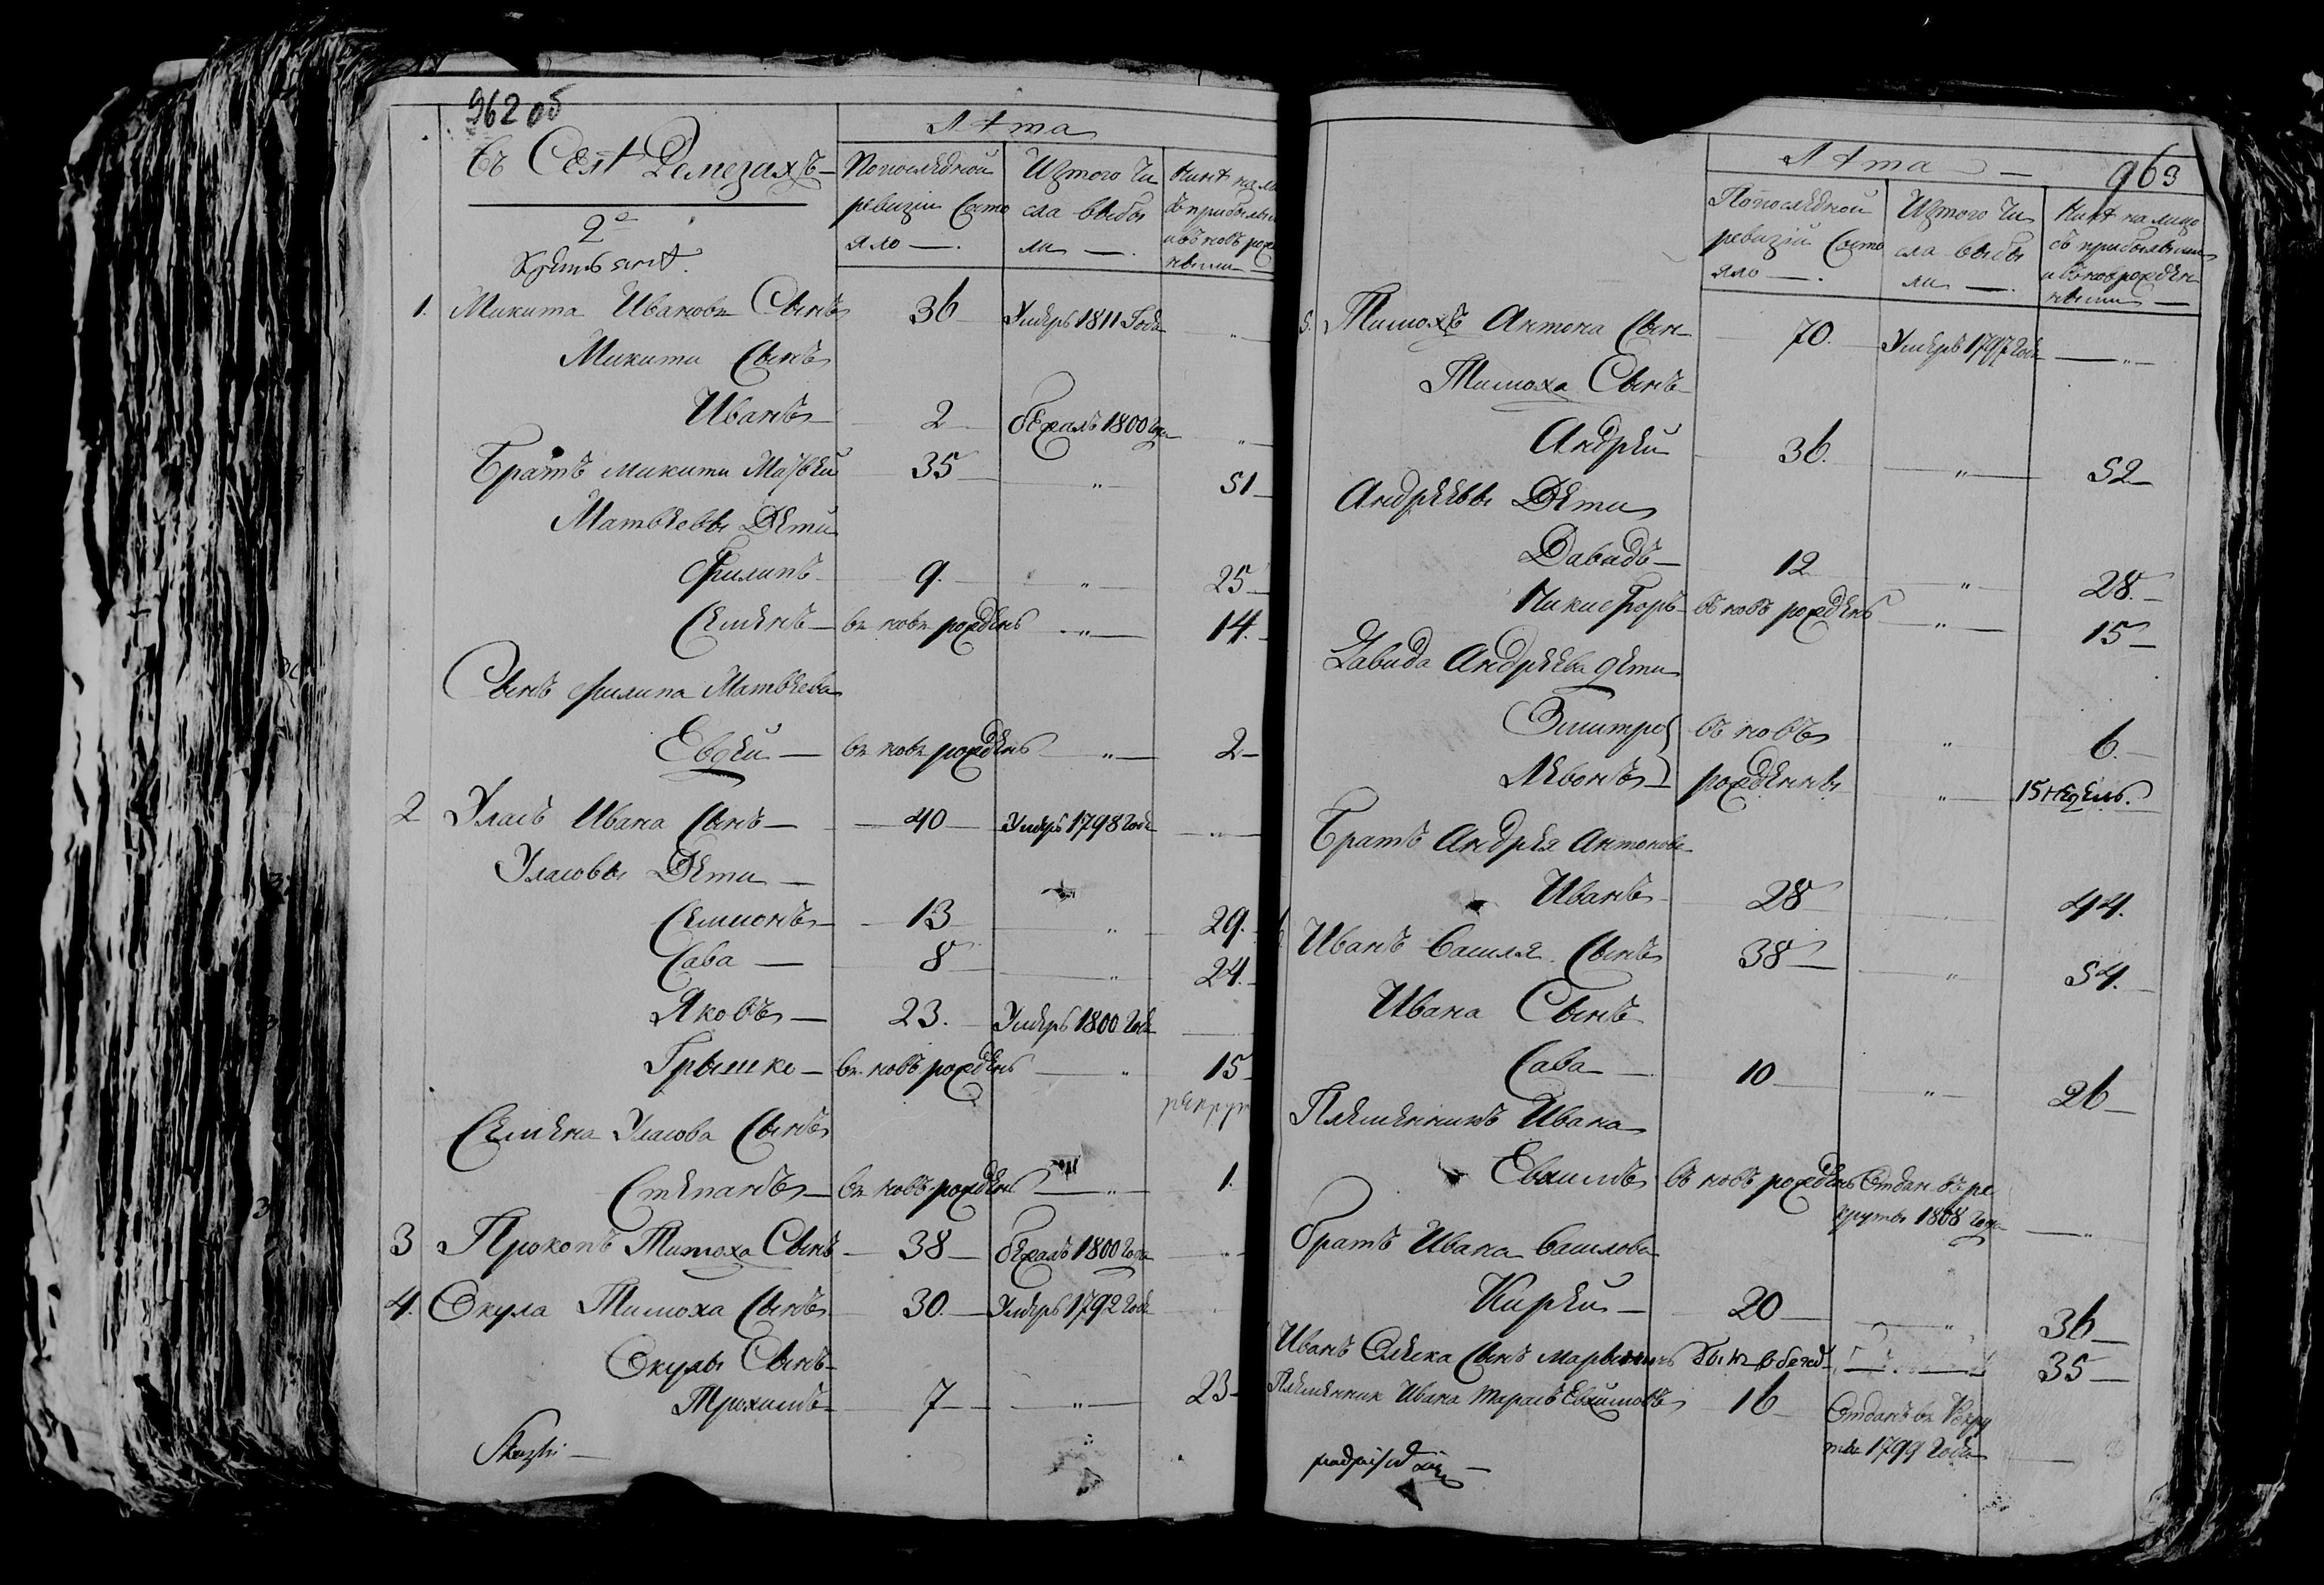 962 об
Въ Селѣ Ремезахъ
Лѣта
Попослѣдной ревизіи Состо яло
Изтого Чи сла выбы ли
Нинѣ на ли
2е
Крестьянѣ
1. Микита Ивановъ Сынъ 36 Умеръ 1811 Года
Микити Сынъ
Иванъ 2 бѣжалъ 1800 Года
Братъ микити Матвѣй 35 " 51
Матвѣевы Дѣти
Филипъ 9. " 25
Семенъ въ новъ рожденъ " 14.
Сынъ филипа Матвѣева
Евдей въ новъ рожденъ " 2
2 Уласъ Ивана Сынъ 40 Умеръ 1798 Года "
Уласовы Дѣти
Семионъ 13 " 29.
Сава 8 " 24.
Яковъ 23. Умеръ 1800 Года
Грышко въ новъ рожденъ " 15
рекрут
Семена Уласова Сынъ
Степанъ въ новъ рожденъ " 1.
3 Прокопъ Тимоха Сынъ 38 бѣжалъ 1800 Года "
4. Окула Тимоха Сынъ 30. Умеръ 1792 Года
Окулы Сынъ
Трохимъ 7 " 23
963
Лѣта
Попослѣдной ревизіи Состо яло
Изтого Чи сла выбы ли
Нинѣ налицо съ прибылыми и въновъ рожден ными
5. Тимохъ Антона Сын 70. Умеръ 1797 Года "
Тимоха Сынъ
Андрей 36. " 52
Андрѣевы Дѣти
Давидъ 12 " 28.
Никифоръ въ новъ рожденъ " 15
Давида Андрѣева дѣти
Змитро въ новъ " 6.
Левонъ рожденны " 15 недель.
Братъ Андрея Антоновъ
Иванъ 28 44.
Иванъ Василя Сынъ 38 " 54.
Ивана Сынъ
Сава 10 " 26
Племенникъ Ивана
Евхимъ въ новъ рожденъ Отдан въ ре
круты 1808 года "
братъ Ивана Василова
Кирей 20 " 36
Иванъ Сынъ 35
Племенник Ивана Тарасъ Евхимовъ 16 Отданъ въ Рекру
ты 1799 Года